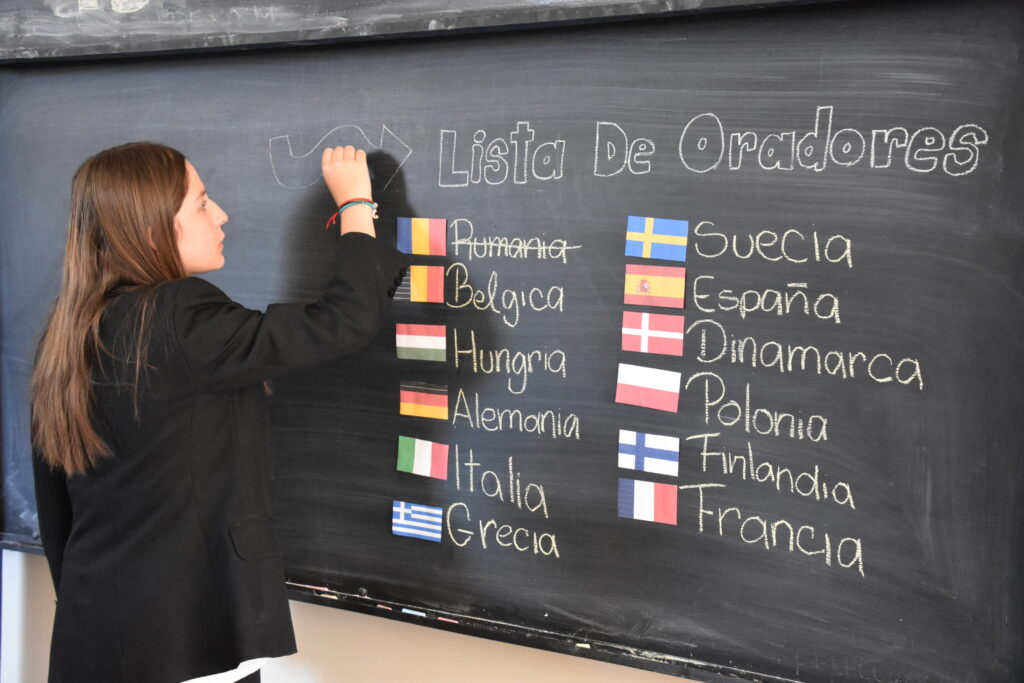 Lista De Oradores
Rumania
Belgica
Hungria
Alemania
Italia
Grecia
Suecia
España
Dinamarca
Polonia
Finlandia
Francia